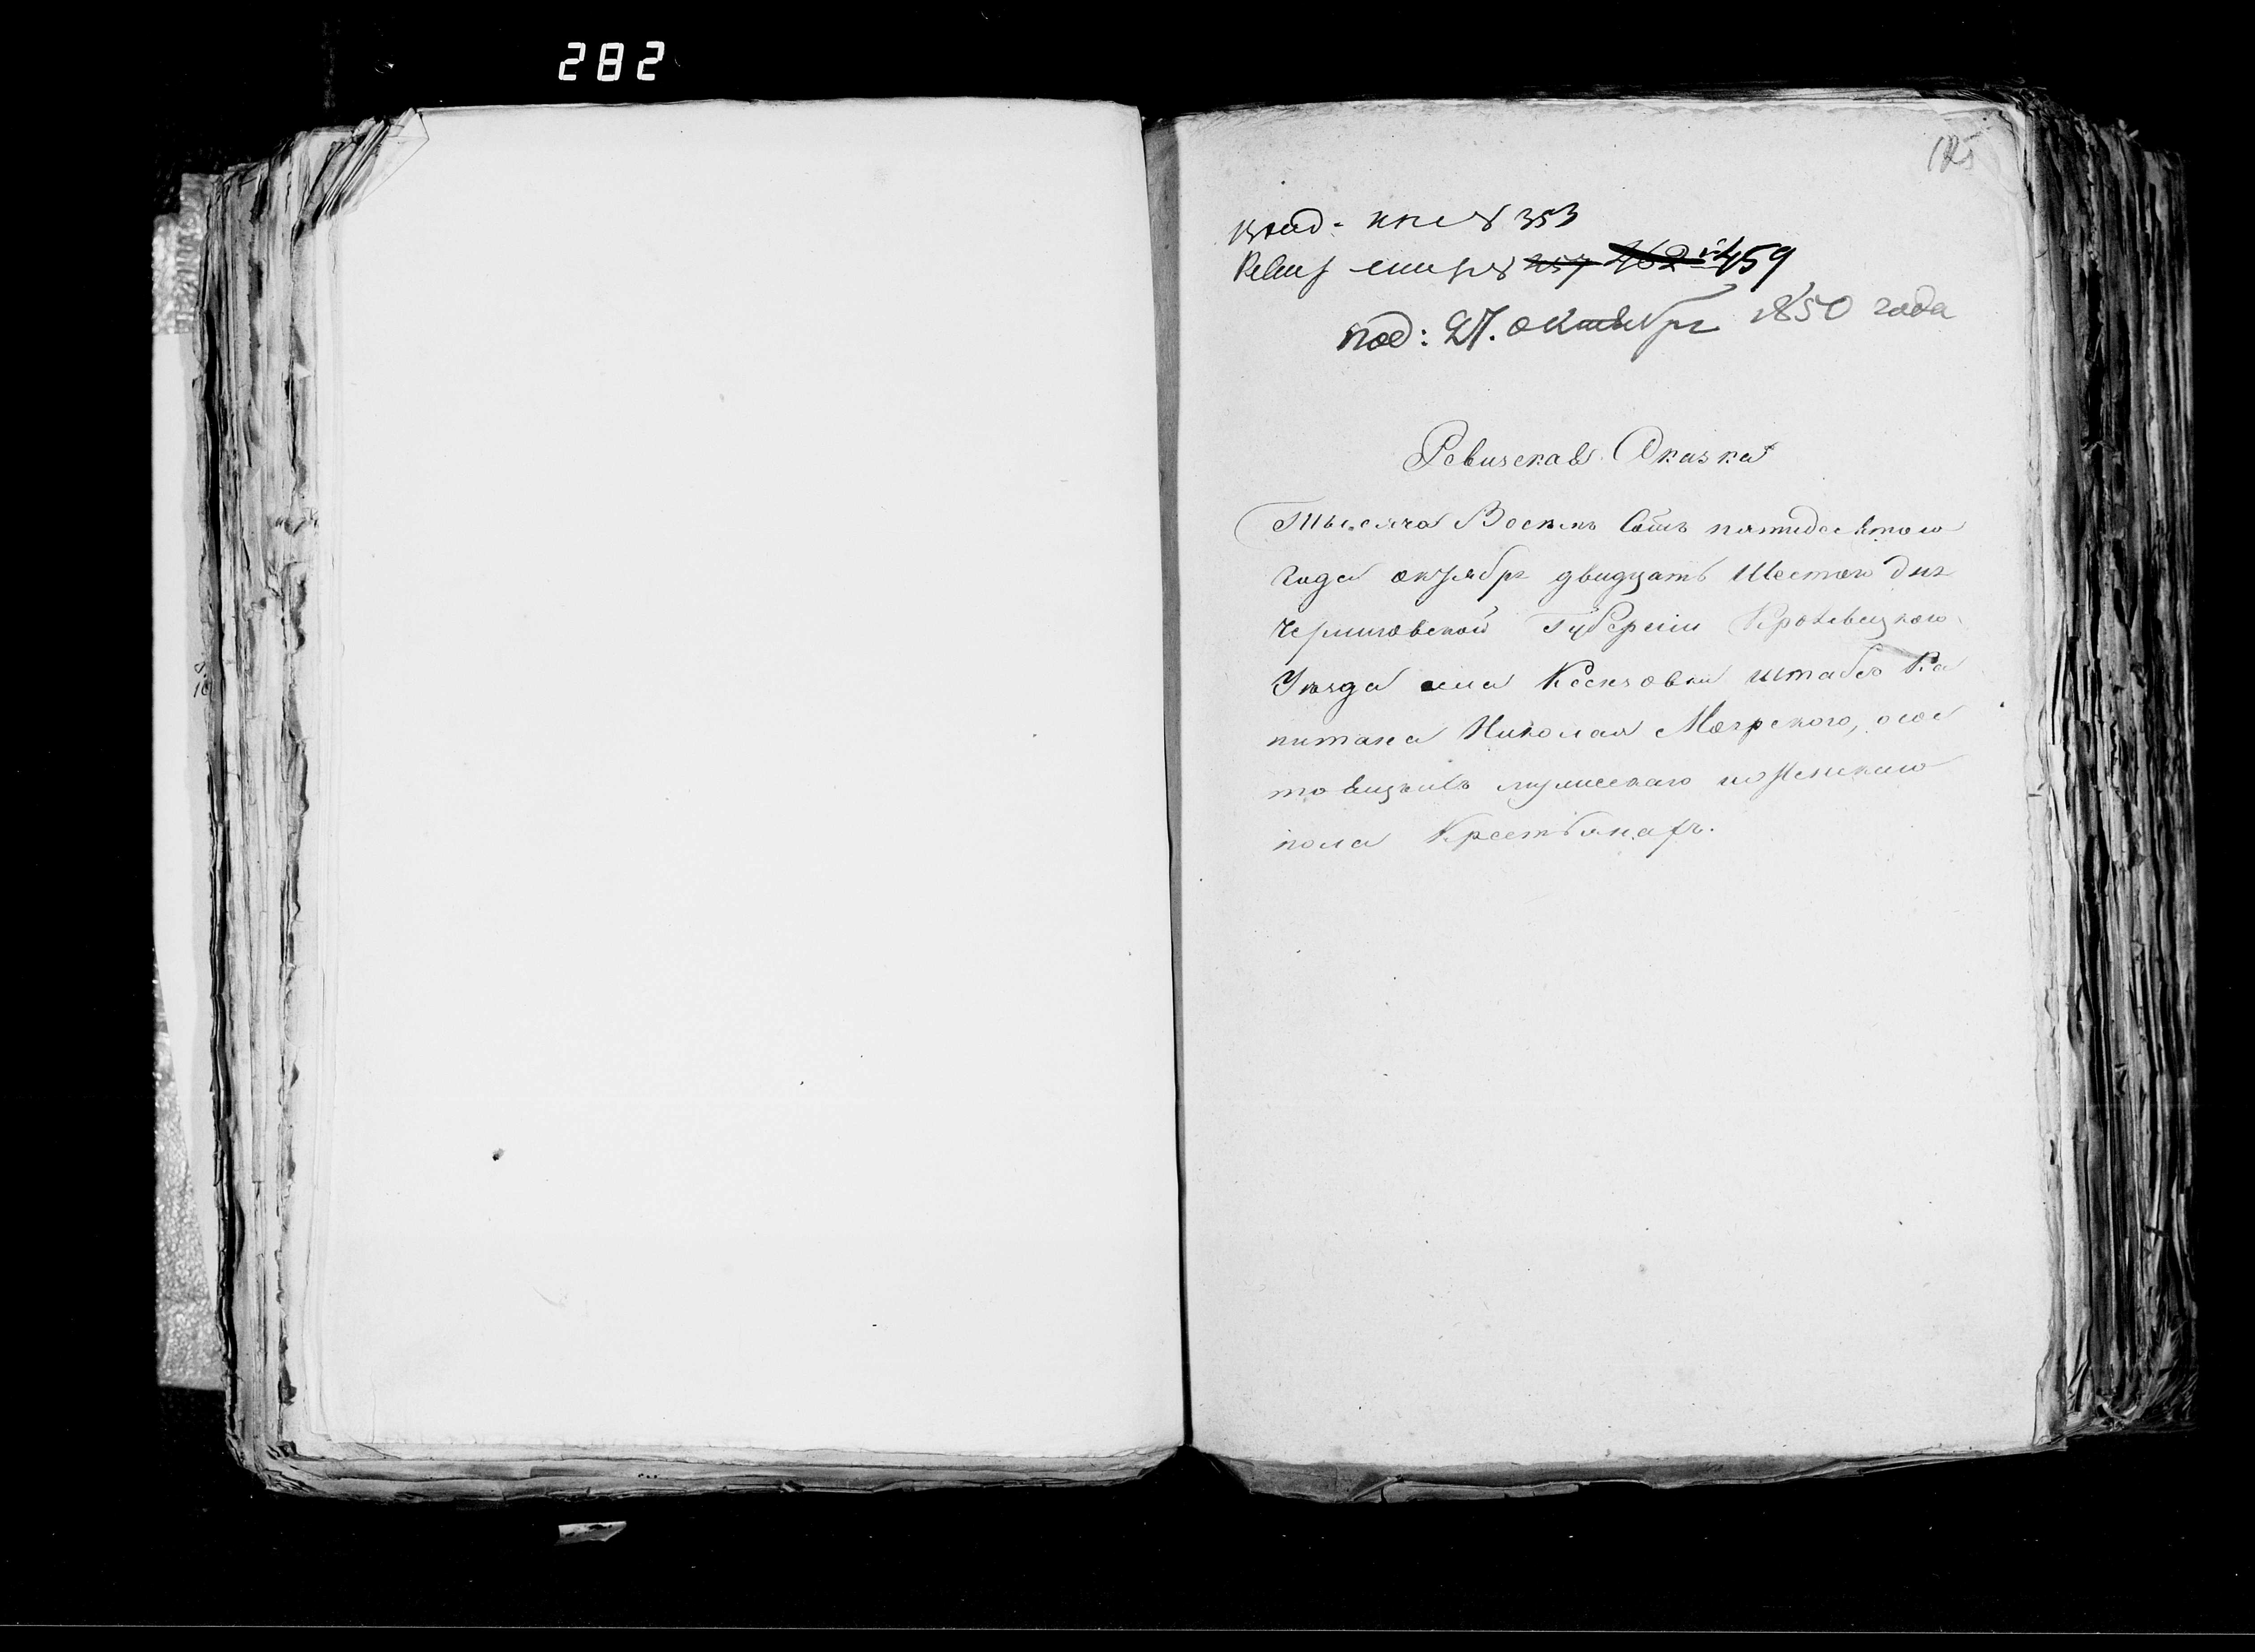 282
125
Вход: кни № 353
Ревиз скаш № 257 462 459
под: 27. октября 1850 года
Ревизская Сказка
Тысяча Восемь Сотъ пятидесятого
Года октября двадцать Шестого дня
Черниговской Губернии Кролевецкого
Уезда села штабсъ Ка
питана Николая о сос
тоящихъ мужескаго и женскаго
пола Крестьянахъ.